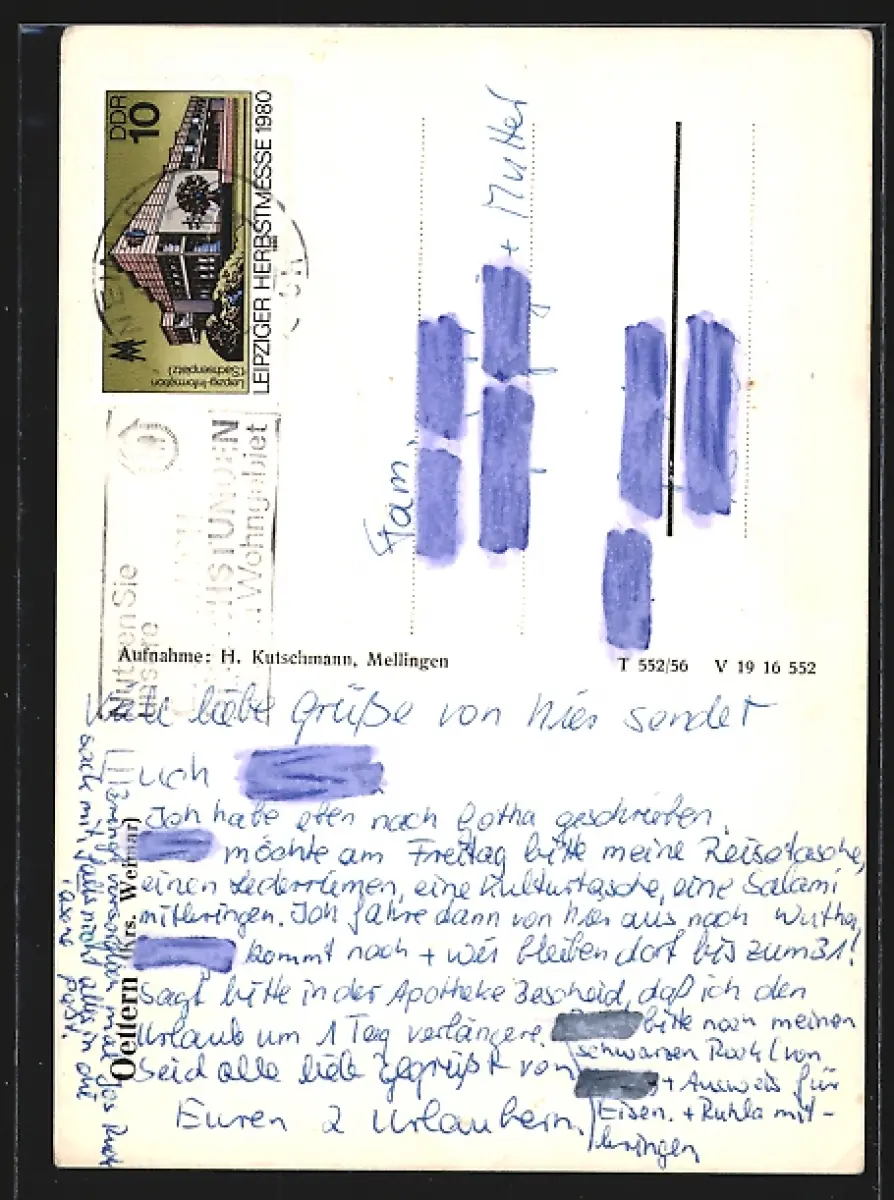 DDR
10
LEIPZIGER HERBSTMESSE 1980
Leipzig-Information
(Sachsenplatz)
Nutzen Sie
Wohngebiet
Fam.
+ Mutter
Aufnahme: H. Kutschmann, Mellingen
T 552/56 V 19 16 552
Oettern (Krs. Weimar)
liebe Grüße von hier sendet
Euch
Ich habe eben nach Gotha geschrieben.
möchte am Freitag bitte meine Reisetasche,
einen Lederriemen, eine Kulturtasche, eine Salami
mitbringen. Ich fahre dann von hier aus nach Wutha,
kommt nach + wir bleiben dort bis zum 31!
Sagt bitte in der Apotheke Bescheid, daß ich den
Urlaub um 1 Tag verlängere.
Seid alle liebe gegrüßt von
Euren 2 Urlaubern.
bitte noch meinen
schwarzen Rock (von
+ Ausweis für
Eisen. + Ruhla mit-
bringen
sack mit, falls nicht alles in die
Tasche paßt.